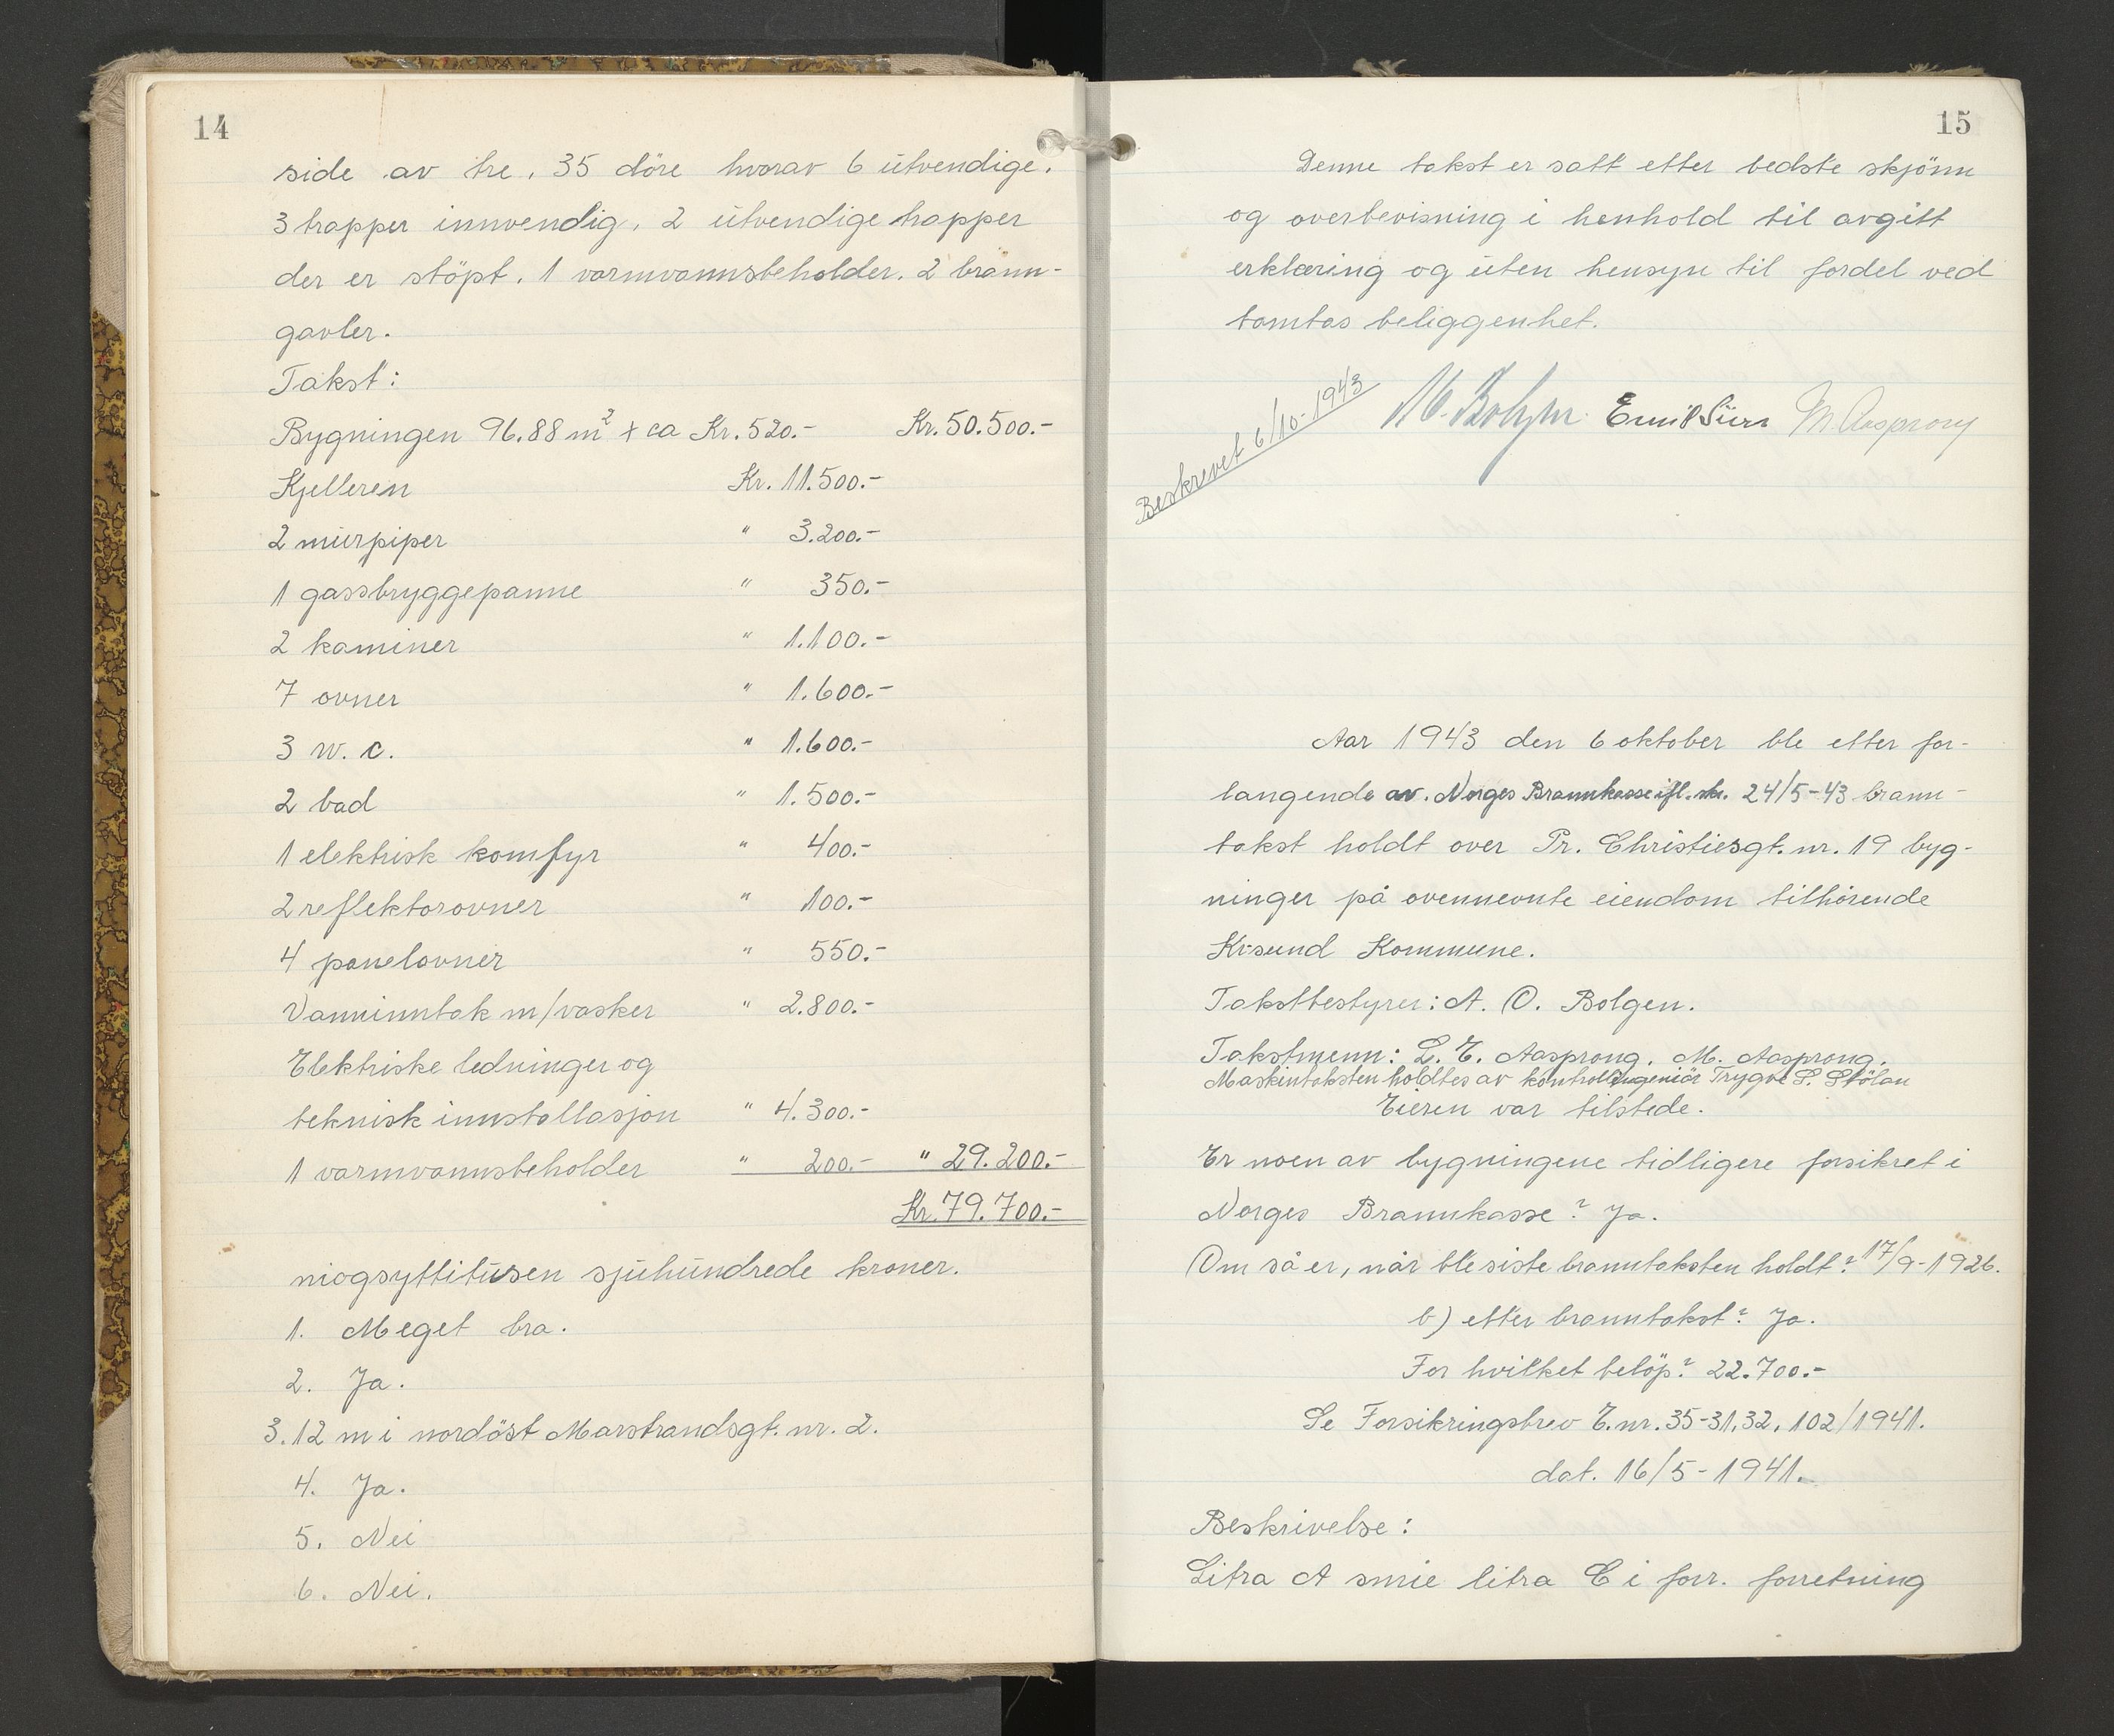 14
side av tre. 35 döre hvorav 6 utvendige.
3 trapper innvendig. 2 utvendige trapper
der er stöpt. 1 varmvannsbeholder. 2 brann-
gavler.
Takst:
Bygningen 96.88 m² x ca Kr. 520.- Kr. 50.500.-
Kjelleren Kr. 11.500.-
2 murpiper " 3.200.-
1 gassbryggepanne " 350.-
2 kaminer " 1.100.-
7 ovner " 1.600.-
3 w.c. " 1.600.-
2 bad " 1.500.-
1 elektrisk komfyr " 400.-
2 reflektorovner " 100.-
4 panelovner " 550.-
Vanninntak m/vasker " 2.800.-
Elektriske ledninger og
teknisk innstallasjon " 4.300.-
1 varmvannsbeholder " 200.- " 29.200.-
Kr. 79.700.-
niogsyttitusen sjuhundrede kroner.
1. Meget bra.
2. Ja.
3. 12 m i nordöst Marstrandsgt. nr. 2.
4. Ja.
5. Nei
6. Nei.
15
Denne takst er satt etter bedste skjönn
og overbevisning i henhold til avgitt
erklæring og uten hensyn til fordel ved
tomtas beliggenhet.
Beskrevet 6/10-1943
M. Aasprong
Aar 1943 den 6 oktober ble etter for-
langende av. Norges Brannkasse ifl. skr. 24/5-43 brann-
takst holdt over Pr. Christiesgt. nr. 19 byg-
ninger på ovennevnte eiendom tilhörende
Krsund Kommune.
Takstbestyrer: A. O. Bolgen.
Takstmenn: L. E. Aasprong. M. Aasprong.
Maskintaksten holdtes av kontrollingeniör Trygve S. Stölan
Eieren var tilstede.
Er noen av bygningene tidligere forsikret i
Norges Brannkasse? Ja.
Om så er, når ble siste branntaksten holdt? 17/9-1926.
b) etter branntakst? Ja.
For hvilket belöp? 22.700.-
Se Forsikringsbrev E.nr. 35-31,32, 102/1941.
dat. 16/5-1941.
Beskrivelse:
Litra A smie litra C i forr. forretning